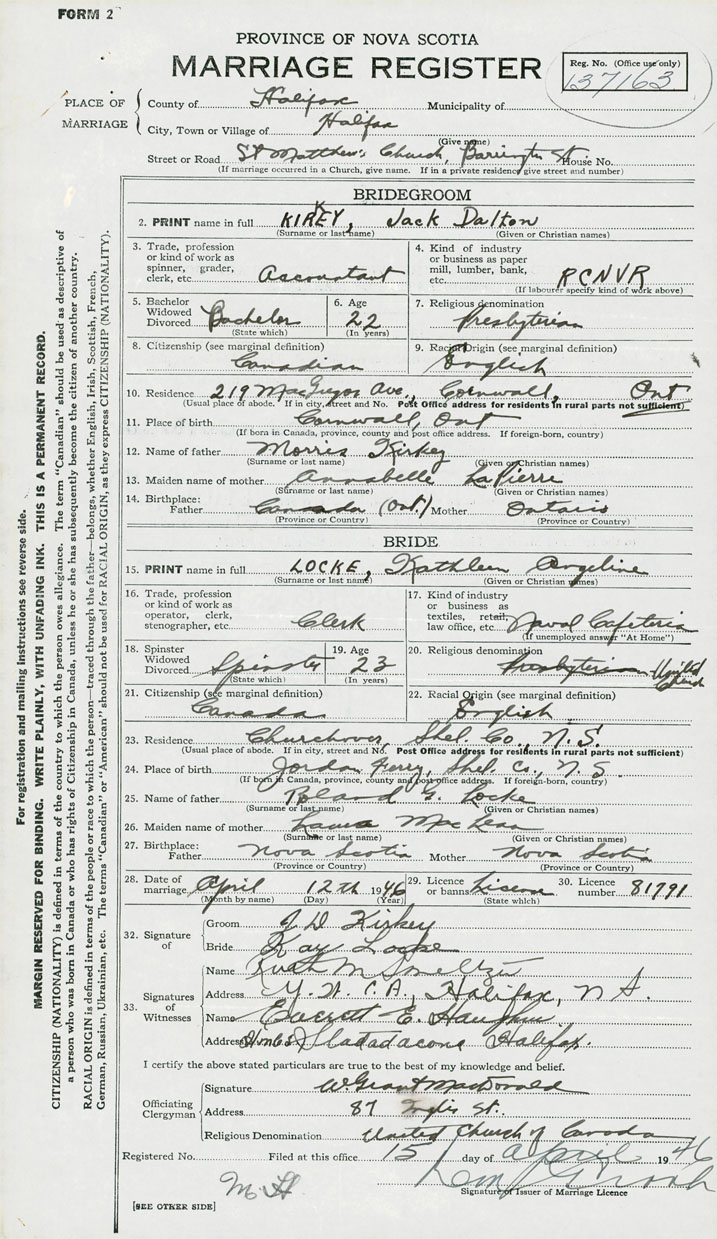 FORM 2
PROVINCE OF NOVA SCOTIA
MARRIAGE REGISTER
Reg. No. (Office use only)
137163
PLACE OF MARRIAGE
County of Halifax Municipality of
City, Town or Village of Halifax
(Give name)
Street or Road St Matthew's Church, Barrington St House No.
(If marriage occurred in a Church, give name. If in a private residence give street and number)
BRIDEGROOM
2. PRINT name in full KIRKEY, Jack Dalton
(Surname or last name) (Given or Christian names)
3. Trade, profession or kind of work as spinner, grader, clerk, etc. Accountant
4. Kind of industry or business as paper mill, lumber, bank, etc. RCNVR
(If labourer specify kind of work above)
5. Bachelor Widowed Divorced Bachelor
(State which)
6. Age 22
(In years)
7. Religious denomination Presbyterian
8. Citizenship (see marginal definition) Canadian
9. Racial Origin (see marginal definition) English
10. Residence 219 MacGregor Ave., Cornwall, Ont
(Usual place of abode. If in city, street and No. Post Office address for residents in rural parts not sufficient)
11. Place of birth Cornwall, Ont
(If born in Canada, province, county and post office address. If foreign-born, country)
12. Name of father Morris Kirkey
(Surname or last name) (Given or Christian names)
13. Maiden name of mother Annabelle LaPierre
(Surname or last name) (Given or Christian names)
14. Birthplace: Father Canada (Ont.) Mother Ontario
(Province or Country) (Province or Country)
BRIDE
15. PRINT name in full LOCKE, Kathleen Angeline
(Surname or last name) (Given or Christian names)
16. Trade, profession or kind of work as operator, clerk, stenographer, etc. Clerk
17. Kind of industry or business as textiles, retail, law office, etc. Naval Cafeteria
(If unemployed answer "At Home")
18. Spinster Widowed Divorced Spinster
(State which)
19. Age 23
(In years)
20. Religious denomination Presbyterian United Church
21. Citizenship (see marginal definition) Canada
22. Racial Origin (see marginal definition) English
23. Residence Churchover, Shel. Co., N.S.
(Usual place of abode. If in city, street and No. Post Office address for residents in rural parts not sufficient)
24. Place of birth Jordan Ferry, Shel. Co., N.S
(If born in Canada, province, county and post office address. If foreign-born, country)
25. Name of father Roland G. Locke
(Surname or last name) (Given or Christian names)
26. Maiden name of mother Laura MacLean
(Surname or last name) (Given or Christian names)
27. Birthplace: Father Nova Scotia Mother Nova Scotia
(Province or Country) (Province or Country)
28. Date of marriage April 12th 1946
(Month by name) (Day) (Year)
29. Licence or banns License
(State which)
30. Licence number 81791
32. Signature of
Groom J D Kirkey
Bride Kay Locke
33. Signatures of Witnesses
Name M Smeltzer
Address Y.W.C.A., Halifax, N S.
Name Everett E.
Address Stadacona Halifax.
I certify the above stated particulars are true to the best of my knowledge and belief.
Officiating Clergyman
Signature W. Grant MacDonald
Address 87 Inglis St.
Religious Denomination United Church of Canada
Registered No. Filed at this office 15 day of April 1946
Signature of Issuer of Marriage Licence
M H
[SEE OTHER SIDE]
For registration and mailing instructions see reverse side.
MARGIN RESERVED FOR BINDING. WRITE PLAINLY, WITH UNFADING INK. THIS IS A PERMANENT RECORD.
CITIZENSHIP (NATIONALITY) is defined in terms of the country to which the person owes allegiance. The term "Canadian" should be used as descriptive of
a person who was born in Canada or who has rights of Citizenship in Canada, unless he or she has subsequently become the citizen of another country.
RACIAL ORIGIN is defined in terms of the people or race to which the person—traced through the father—belongs, whether English, Irish, Scottish, French,
German, Russian, Ukrainian, etc. The terms "Canadian" or "American" should not be used for RACIAL ORIGIN, as they express CITIZENSHIP (NATIONALITY).